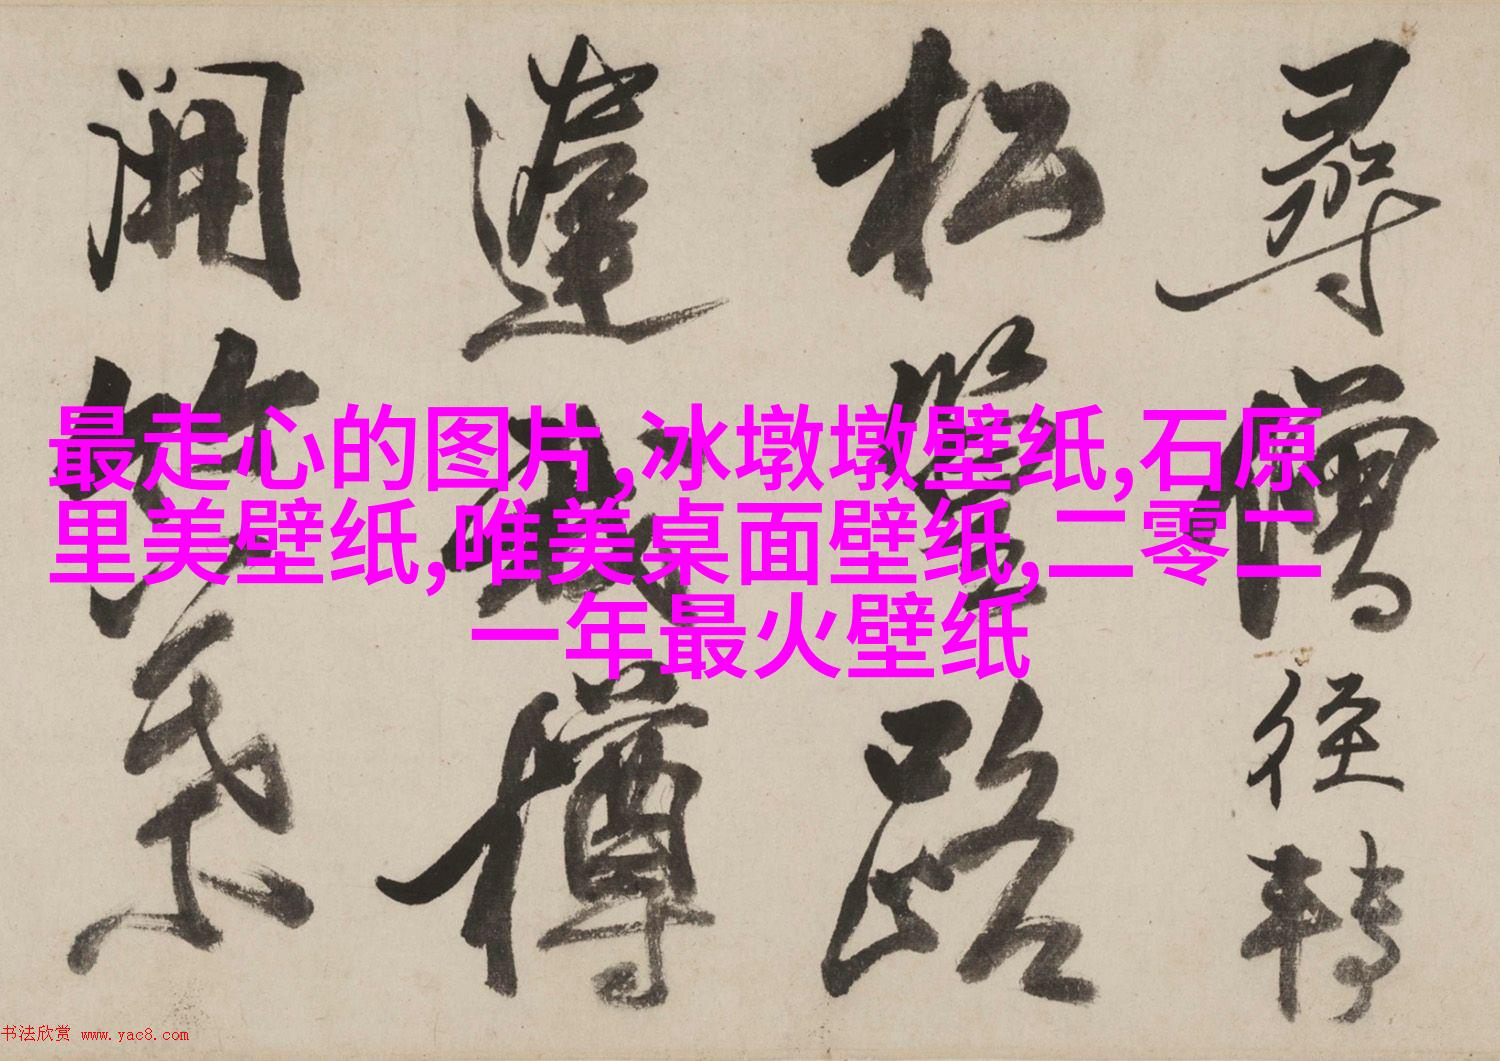 尋僧径轉
松篁路
蓬戎樽
開笑飛
最走心的图片,冰墩墩壁纸,石原
里美壁纸,唯美桌面壁纸,二零二
一年最火壁纸
书法欣赏 www.yac8.com